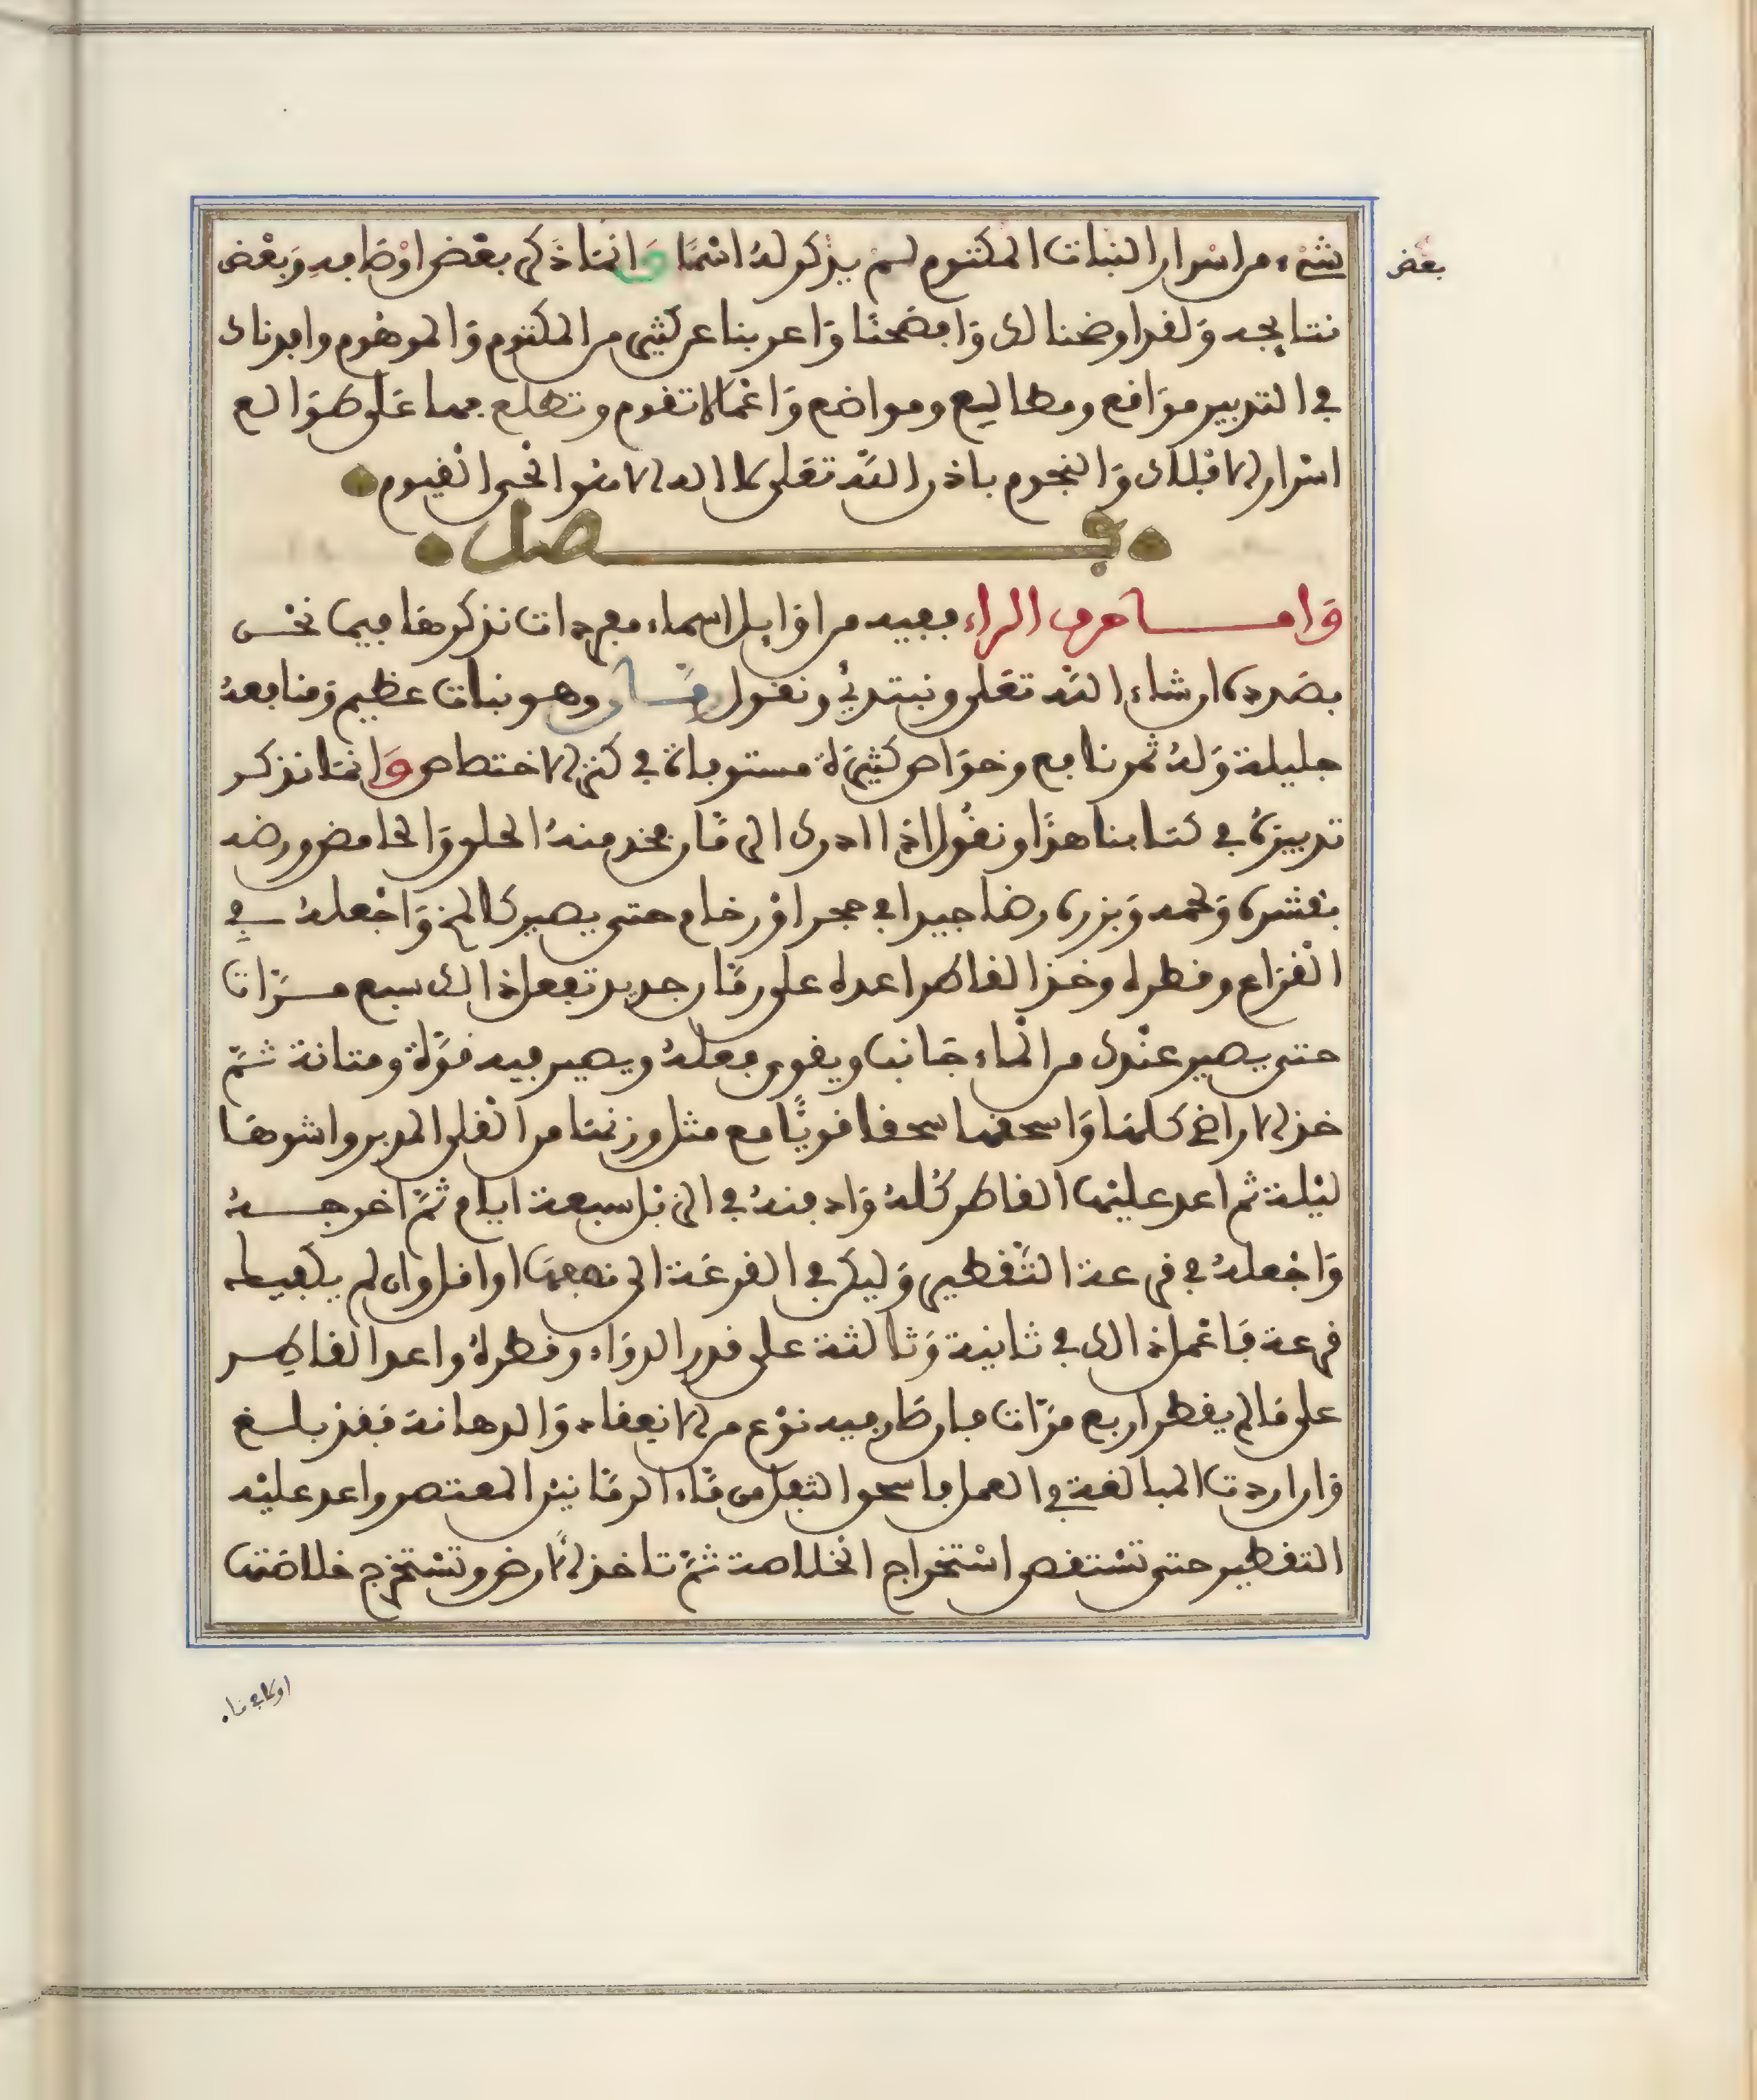 بعض
شيء من اسرار النبات المكتوم لم يذكر له اسمًا وَانما ذكر بعض اوْصَافه وَبعْض
نتايجه وَلقد اوضحنا لك وَافصحنا وَاعربنا عن كثير من المكتوم وَالموهوم وافدناك
في التدبير موَاقع ومطاليع ومواضع وَاعْمالا تقوم وتطلع بهما عَلى طوَالع
اسْرار الافلاك وَالنجوم باذن اللّه تعَلى لا اله الا هُو الحْي القيوم
فصل
وَامـا حرف الراء ففيه من اوَايل اسماء مفردات نذكرها فيما نحْن
بصَدده ان شاء اللّه تعَلى ونبتدئ ونقول رمّان وهو نبات عظيم وَمنافعهُ
جليلة وَلهُ ثمر نافع وخوَاص كثيرَة مستوفاة في كنز الاختصاص وَانما نذكر
تدبيرهُ في كتابنا هذَا ونقُول اذا ادرك الرمَّان فخذ منهُ الحلو وَالحامض ورضه
بقشره وَلحمه وَبزره رضا جيدا في حجر اوْ رخام حتى يصير كالمخ وَاجْعلهُ في
القرَاع وقطره وخذ القاطر اعده على رمَّان جديد تفعل ذالك سبع مرّات
حتى يصير عنْدك من الماء جَانب ويقوى فعلهُ ويصير فيه قوَّة ومتانة ثمّ
خذ الاراضي كلهَا وَاسحقها سحقا قويًّا مع مثل وزنهَا من القلى المدبر واشوهَا
ليْلة ثم اعد عليْها القاطر كُلهُ وَادفنهُ في الزبل سبعة ايام ثمَّ اخرجه
وَاجْعلهُ في قرعة التَّقطير وَليكن في القرعَة الى نصفهَا او اقل وان لم يكفيك
قرعة فَاعْمل ذالك في ثانية وَثالثة على قدر الدوَاء وقطرهُ واعد القاطر
على مَا لم يقطر اربع مرَّات فان صَار فيه نوْع من الانعقاد وَالدهانة فَقد بلغ
وَان اردت المبالغة في العمل فاسحق الثفل من مَّاء الرمَّانيْن المعتصر واعد عليْه
التقطير حتى تسْتقص اسْتخراج الخلاصة ثمَّ تاخذ الاَرض وتسْتخرج خلاصَتها